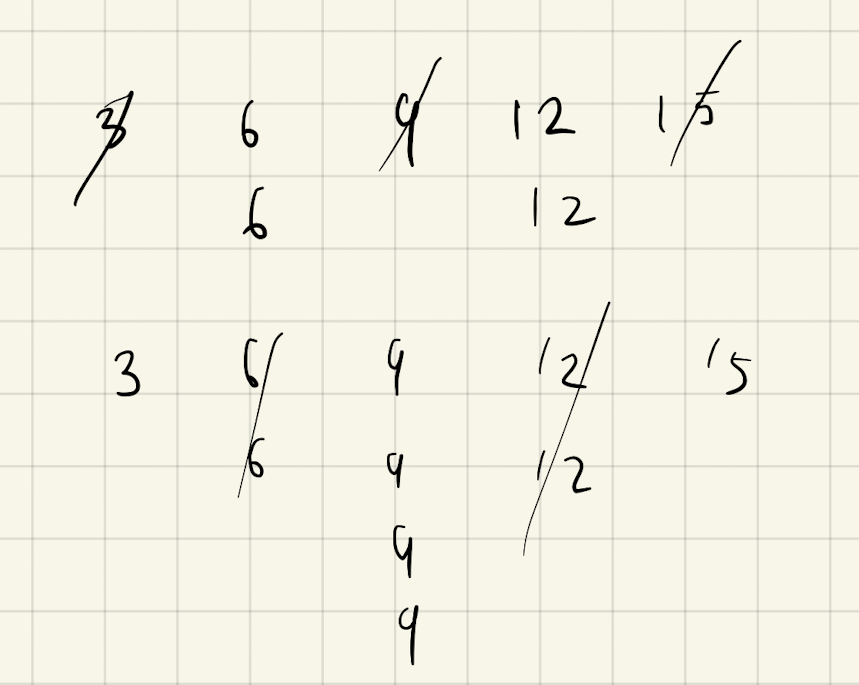 3 6 9 12 15
6 12
3 6 9 12 15
6 9 12
9
9